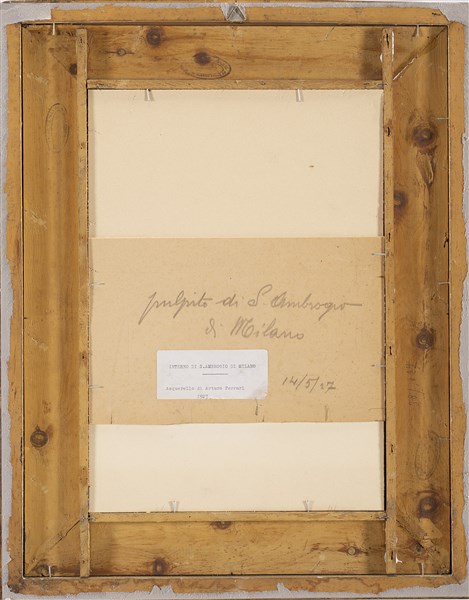 pulpito di S. Ambrogio
di Milano
INTERNO DI S.AMBROGIO DI MILANO
Acquerello di Arturo Ferrari
14/5/27